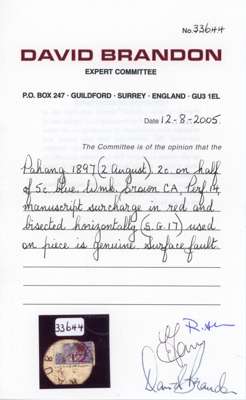 No. 33644
DAVID BRANDON
EXPERT COMMITTEE
P.O. BOX 247 · GUILDFORD · SURREY · ENGLAND · GU3 1EL
Date 12-8-2005
The Committee is of the opinion that the
Pahang 1897 (2 August) 2c. on half
of 5c. blue. Wmk. crown CA, Perf. 14,
manuscript surcharge in red and
bisected horizontally (S.G.17) used
on piece is genuine. Surface fault.
33644
David Brandon